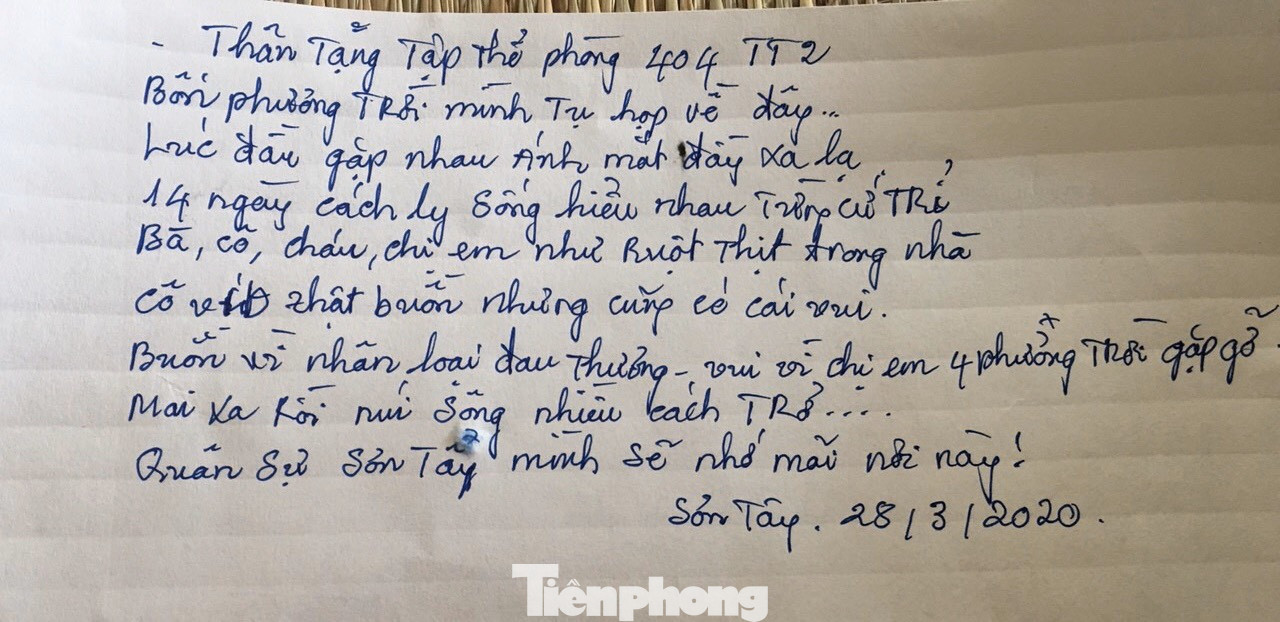 - Thân Tặng Tập thể phòng 404 TT2
Bốn phương Trời mình Tụ họp về đây...
Lúc đầu gặp nhau Ánh mắt đầy xa lạ
14 ngày cách ly Sống hiểu nhau Từng cử Trỉ
Bà, cô, cháu, chị em như Ruột Thịt trong nhà
Cô vít thật buồn nhưng cũng có cái vui.
Buồn vì nhân loại đau thương - vui vì chị em 4 phương Trời gặp gỡ.
Mai xa Rồi núi Sông nhiều cách TRở....
Quân Sự Sơn Tây mình sẽ nhớ mãi nơi này!
Sơn Tây. 28/3/2020.
Tiênphong